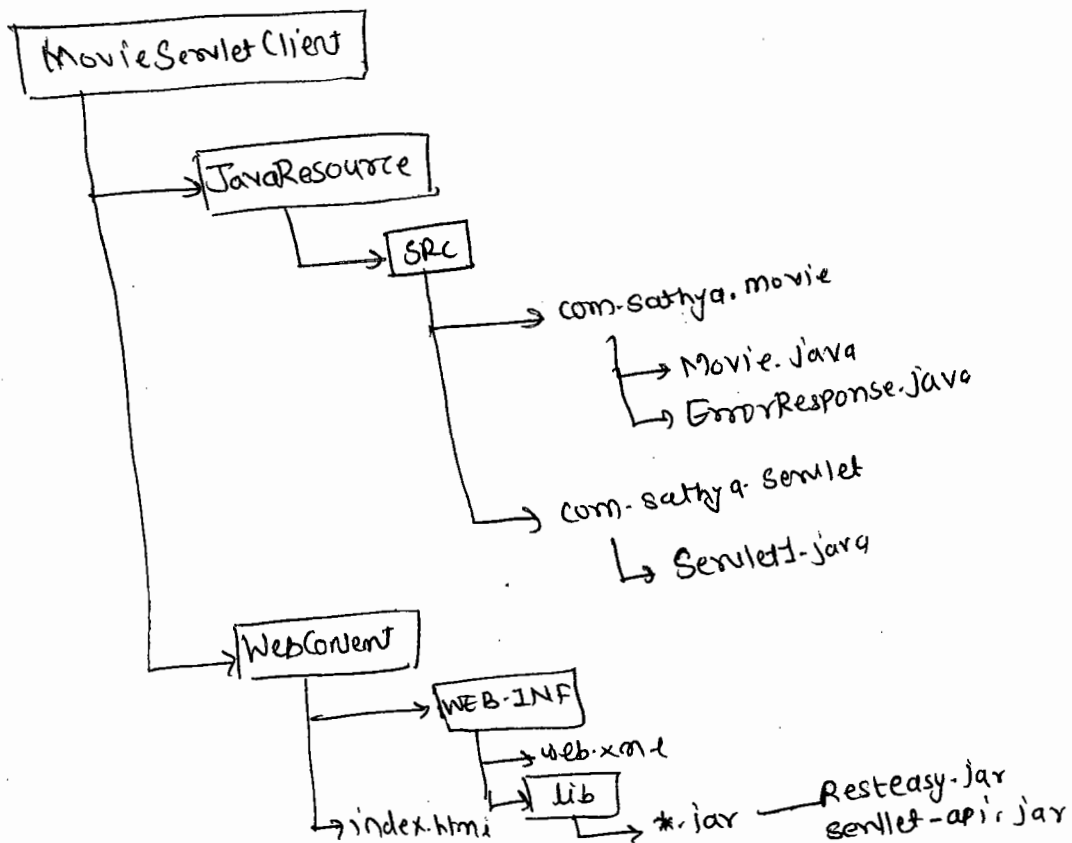 MovieServletClient
JavaResource
SRC
com.sathya.movie
Movie.java
ErrorResponse.java
com.sathya.servlet
Servlet1.java
WebContent
WEB-INF
web.xml
lib
index.html
*.jar
Resteasy.jar
servlet-api.jar